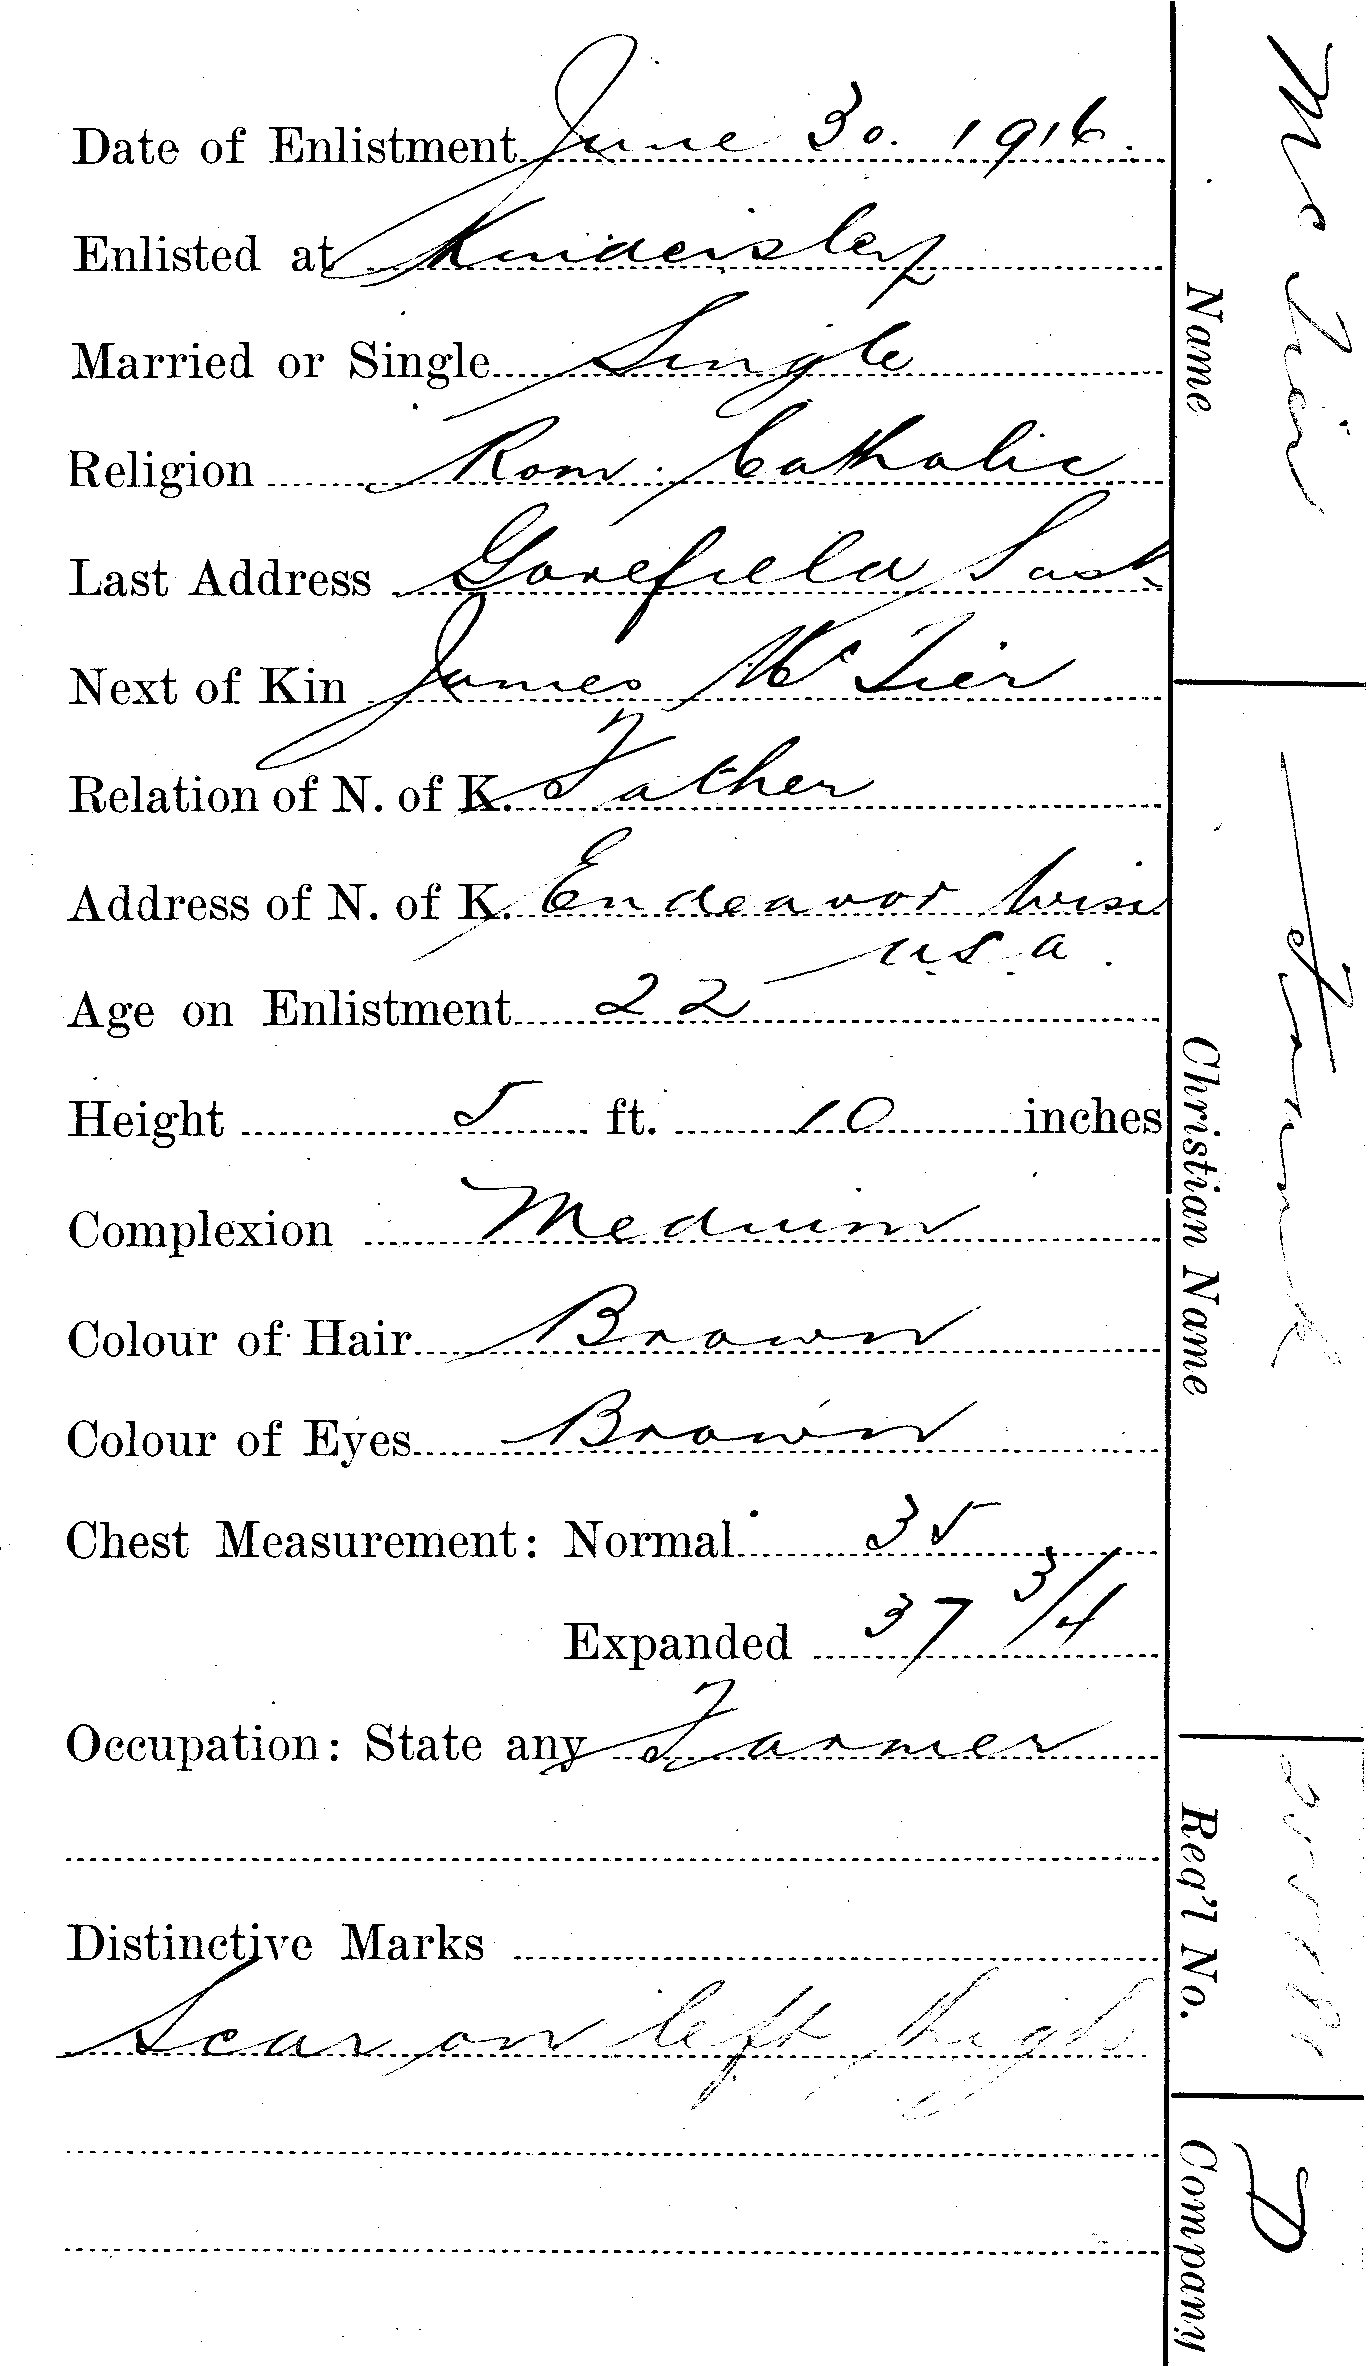 Date of Enlistment June 30. 1916.
Enlisted at Kindersley
Married or Single Single
Religion Rom. Catholic
Last Address Gorefield Sask
Next of Kin James McTier
Relation of N. of K. Father
Address of N. of K. Endeavor Wisc
U.S.A.
Age on Enlistment 22
Height 5 ft. 10 inches
Complexion Medium
Colour of Hair Brown
Colour of Eyes Brown
Chest Measurement: Normal 35
Expanded 37 3/4
Occupation: State any Farmer
Distinctive Marks
Scar on left thigh
Name McTier
Christian Name Frank
Reg'l No.
Company D